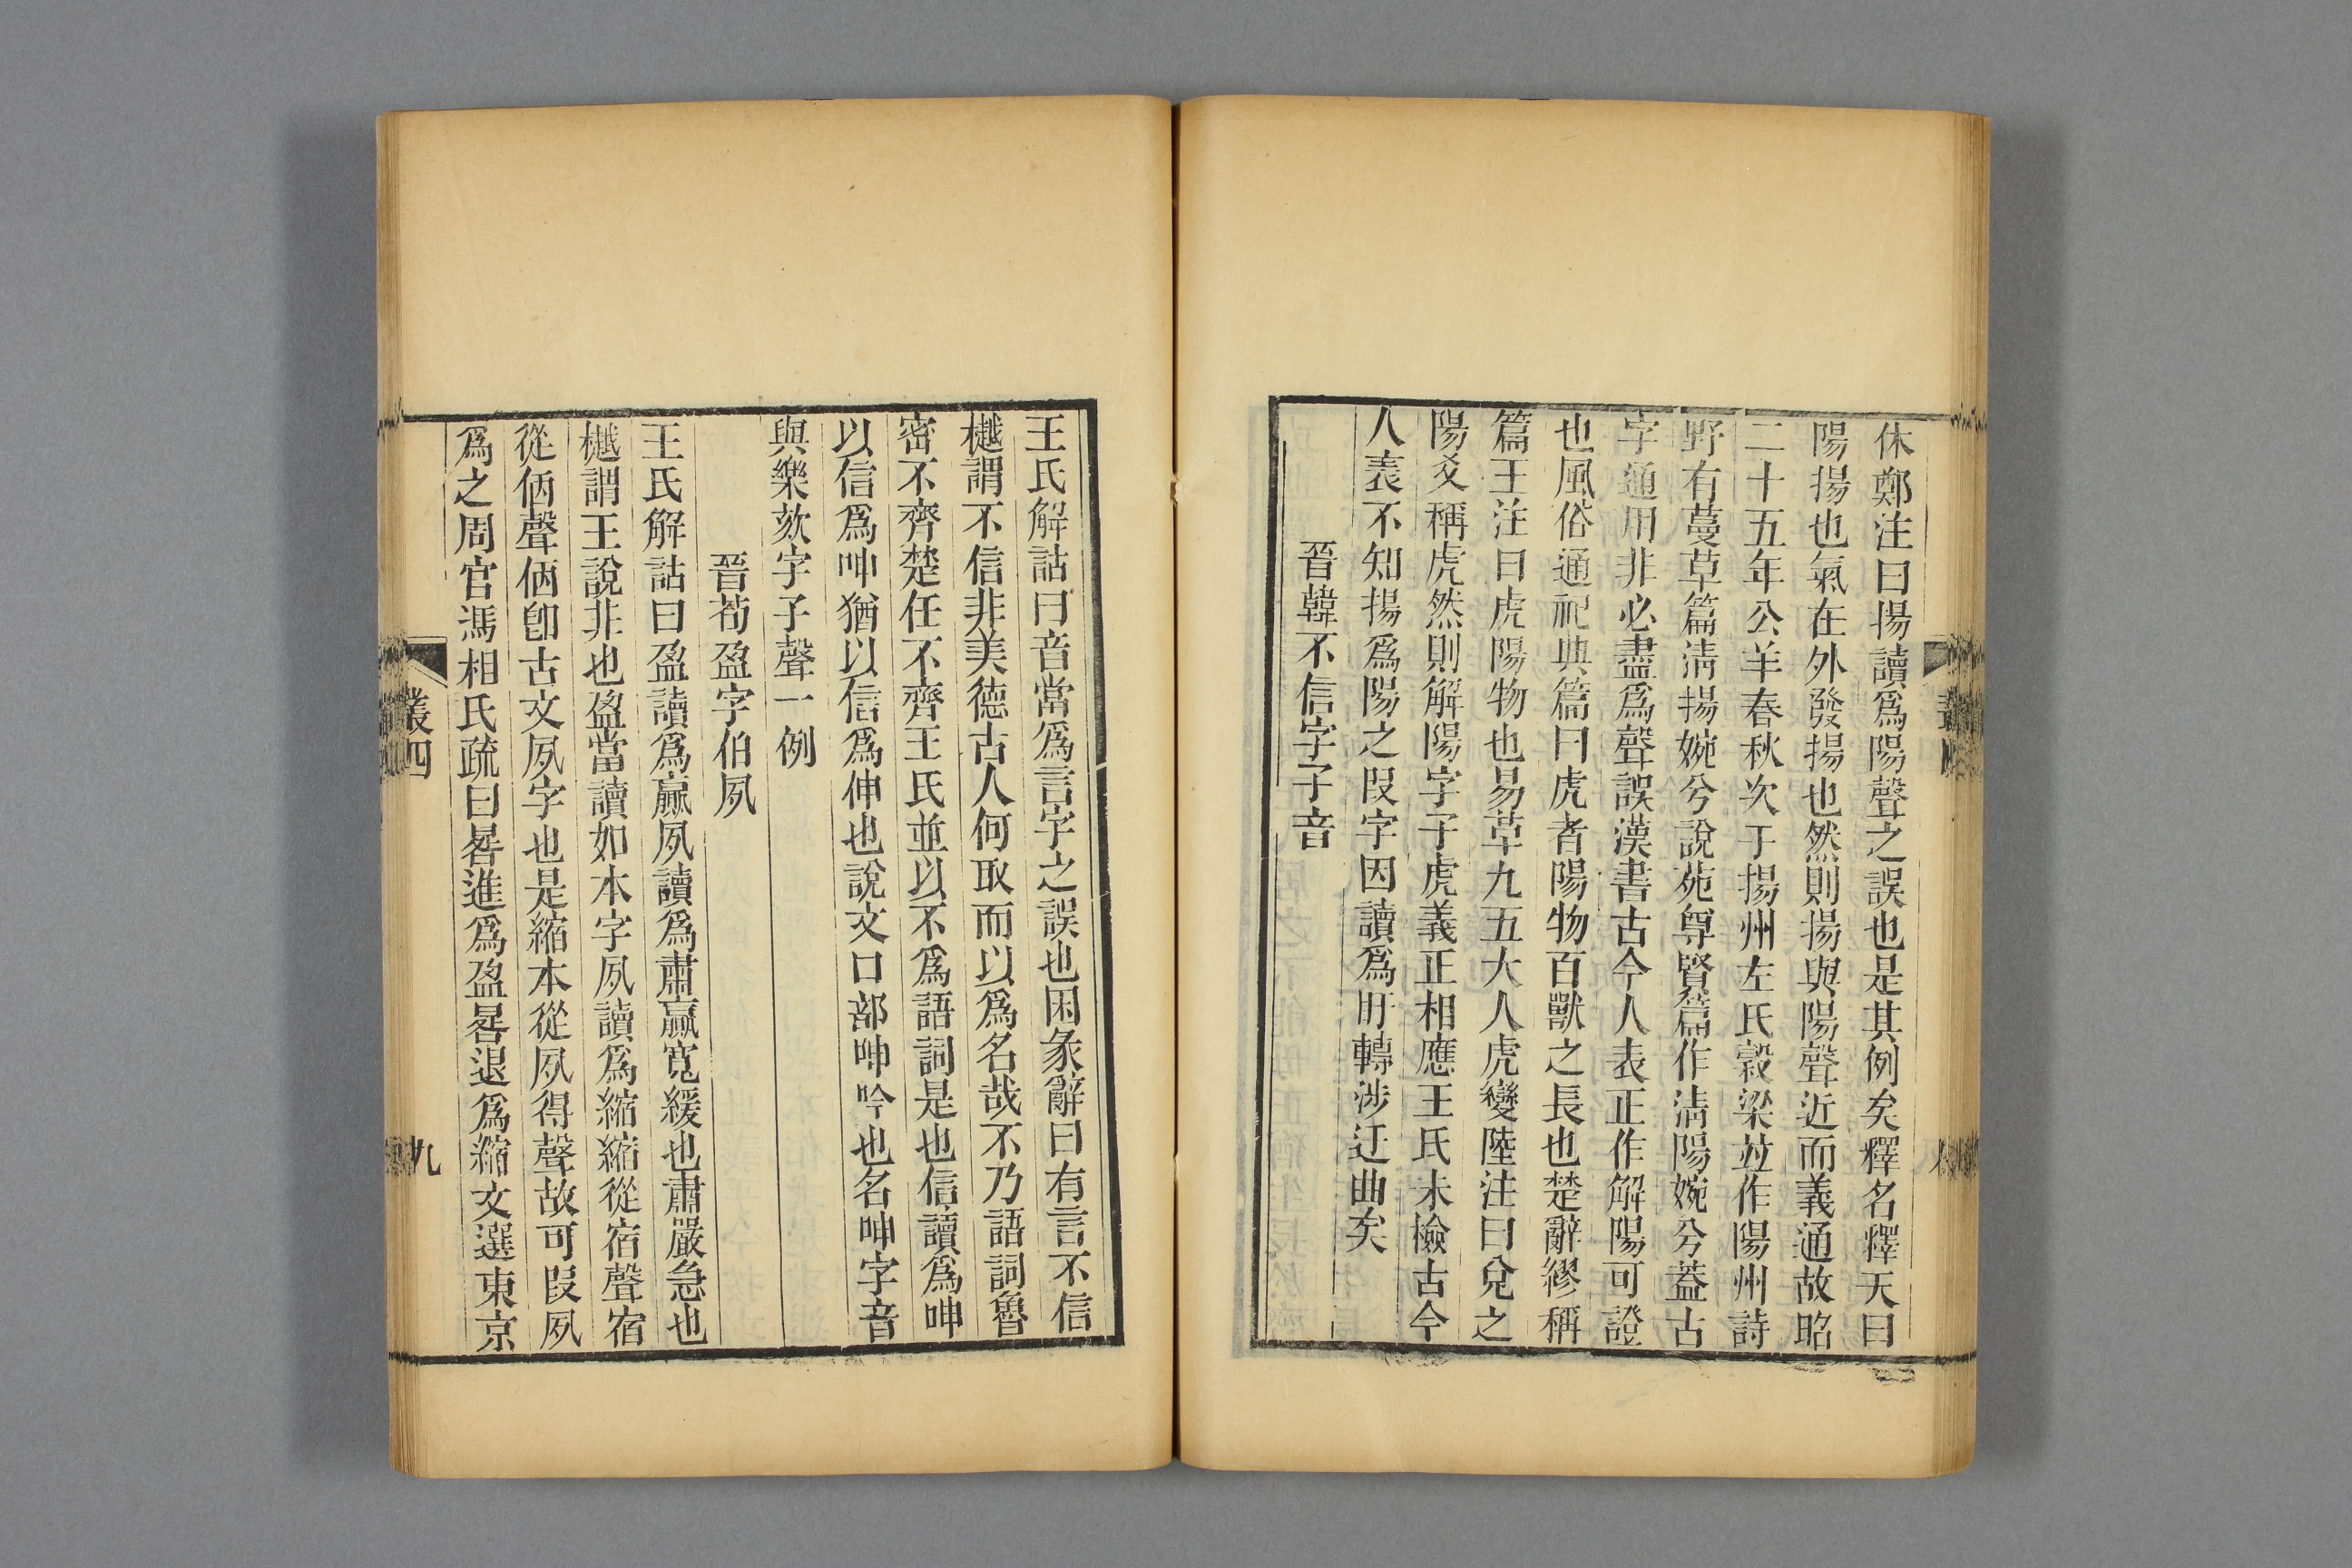 休鄭注曰揚讀爲陽聲之誤也是其例矣釋名釋天曰
陽揚也氣在外發揚也然則揚與陽聲近而義通故昭
二十五年公羊春秋次于揚州左氏穀梁竝作陽州詩
野有蔓草篇淸揚婉兮說苑尊賢篇作淸陽婉兮葢古
字通用非必盡爲聲誤漢書古今人表正作解陽可證
也風俗通祀典篇曰虎者陽物百獸之長也楚辭繆稱
篇王注曰虎陽物也易革九五大人虎變陸注曰兌之
陽爻稱虎然則解陽字子虎義正相應王氏未檢古今
人表不知揚爲陽之叚字因讀爲盱轉涉迂曲矣
晉韓不信字子音
王氏解詁曰音當爲言字之誤也困彖辭曰有言不信
樾謂不信非美德古人何取而以爲名哉不乃語詞魯
密不齊楚任不齊王氏並以不爲語詞是也信讀爲呻
以信爲呻猶以信爲伸也說文口部呻吟也名呻字音
與樂欬字子聲一例
晉荀盈字伯夙
王氏解詁曰盈讀爲贏夙讀爲肅贏寬緩也肅嚴急也
樾謂王說非也盈當讀如本字夙讀爲縮縮從宿聲宿
從㐁聲㐁卽古文夙字也是縮本從夙得聲故可叚夙
爲之周官馮相氏疏曰晷進爲盈晷退爲縮文選東京
叢四
九